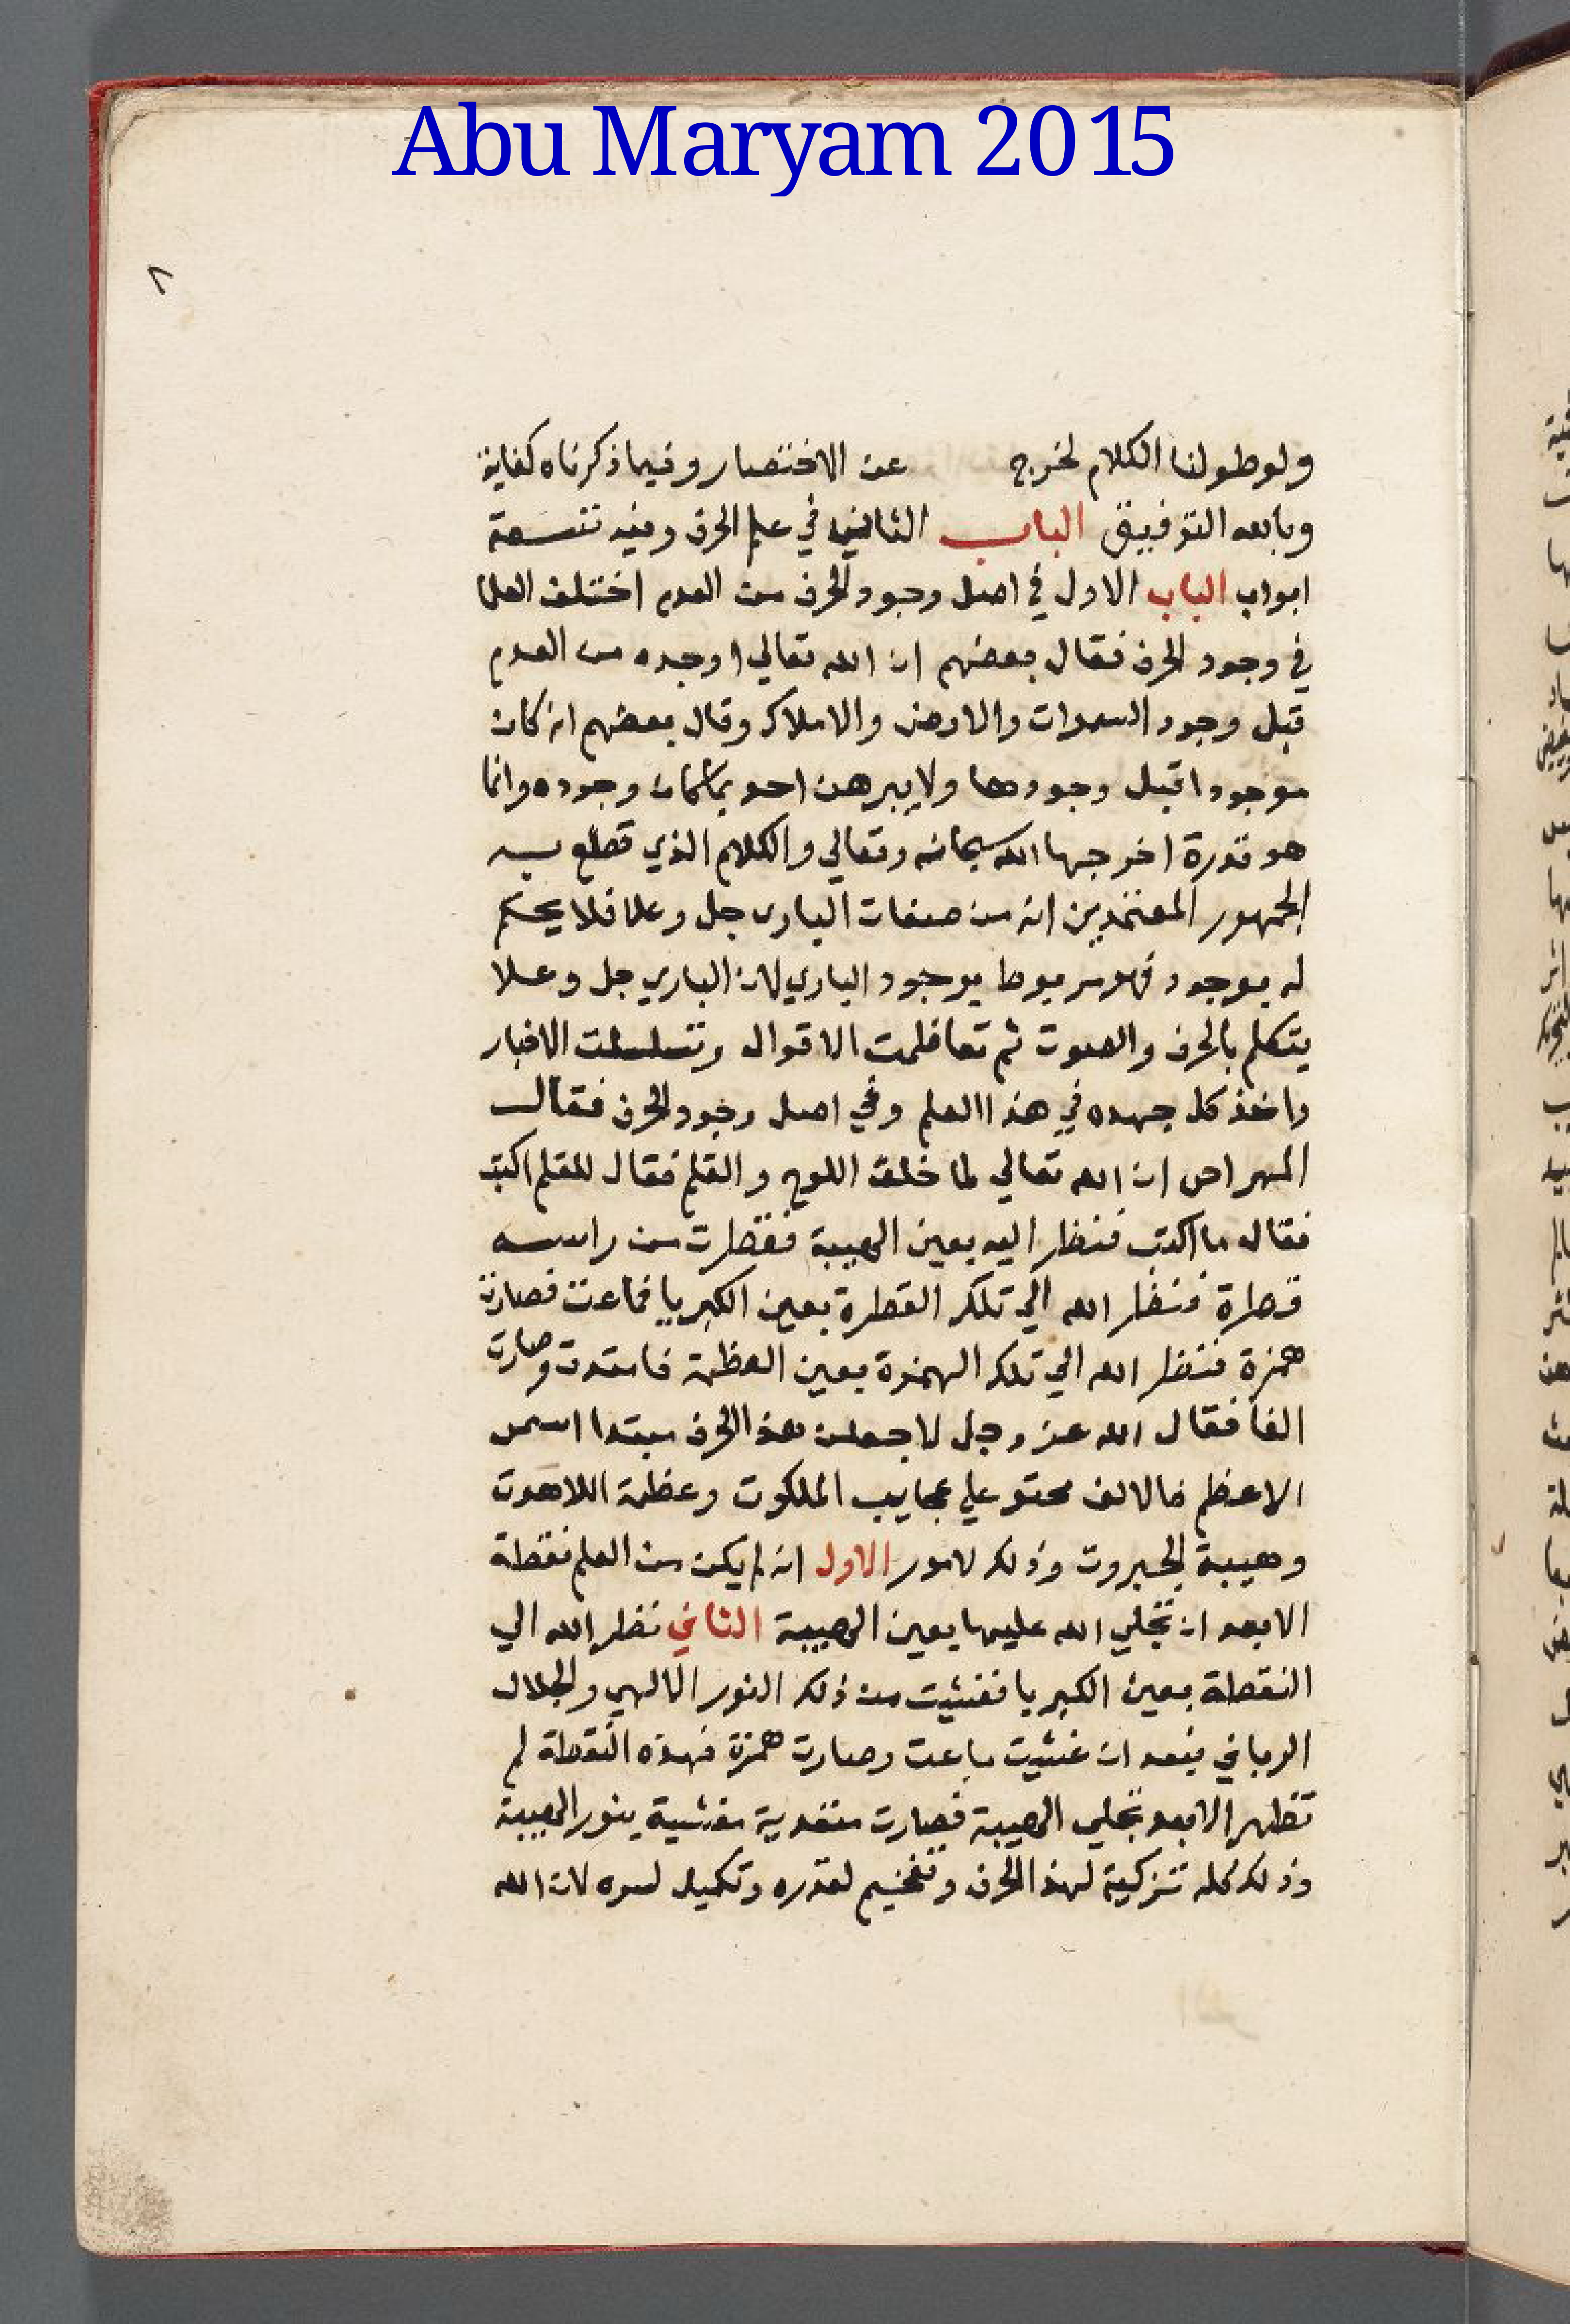 Abu Maryam 2015
٨
ولو طولنا الكلام لخرج عن الاختصار وفيما ذكرناه كفاية
وبالله التوفيق الباب الثاني في علم الحرف وفيه تسعة
ابواب الباب الاول في اصل وجود الحرف من العدم اختلف العلما
في وجود الحرف فقال بعضهم ان الله تعالي اوجده من العدم
قبل وجود السموات والارض والاملاك وقال بعضهم انه كان
موجودا قبل وجودها ولا يبرهن احد وجوده وانما
هو قدرة اخرجها الله سبحانه وتعالي والكلام الذي قطع به
الجمهور المعتمدين انه من صفات الباري جل وعلا فلا يحكم
له بوجود فهو مربوط بوجود الباري لان الباري جل وعلا
يتكلم بالحرف والصوت ثم تعاظمت الاقوال وتسلسلت الاخبار
واخذ كل جهده في هذا العلم وفي اصل وجود الحرف فقال
المهراس ان الله تعالي لما خلق اللوح والقلم فقال للقلم اكتب
فقال ما اكتب فنظر اليه بعين الهيبة فقطرت من راسه
قطرة فنظر الله الي تلك القطرة بعين الكبريا فماعت فصارت
همزة فنظر الله الي تلك الهمزة بعين العظمة فامتدت وصارت
الفا فقال الله عز وجل لاجعلن هذا الحرف مبتدا اسمي
الاعظم فالالف محتو علي عجايب الملكوت وعظمة اللاهوت
وهيبة الجبروت وذلك لامور الاول انه لم يكن من العلم نقطة
الا بعد ان تجلي الله عليها بعين الهيبة الثاني نظر الله الي
النقطة بعين الكبريا فغشيت من ذلك النور الالهي والجلال
الرباني فبعد ان غشيت ماعت وصارت همزة فهذه النقطة لم
تظهر الا بعد تجلي الهيبة فصارت مغشية بنور الهيبة
وذلك كله تزكية لهذا الحرف وتفخيم لقدره وتكميل لسره لان الله